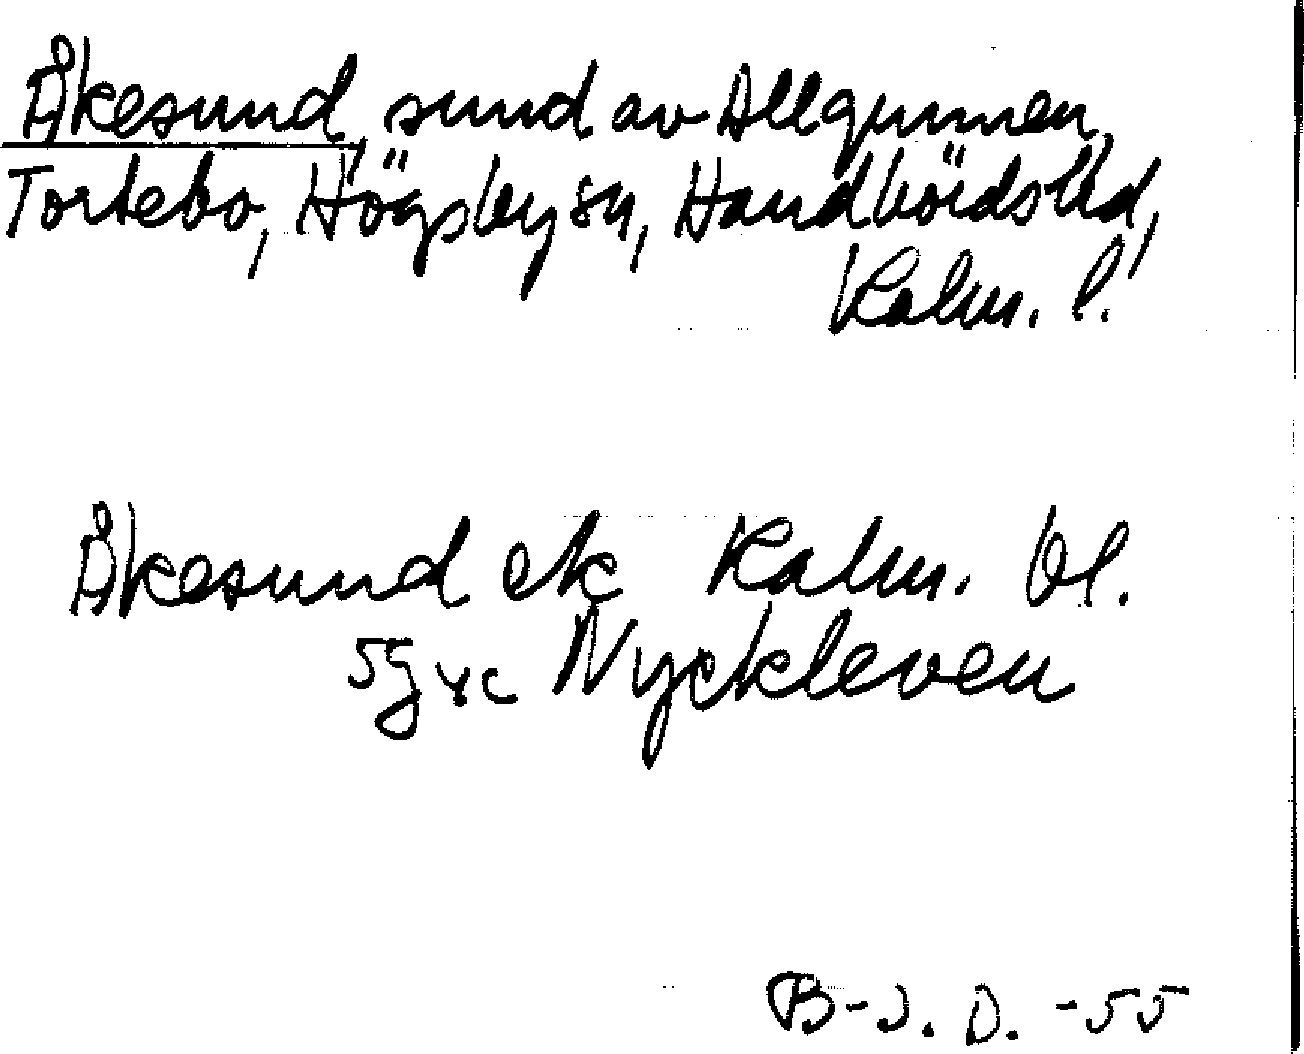 Åkesund, sund av Allgunnen,
Tortebo, Högsby sn, Handbörds hd,
Kalm. l.
Åkesund ek Kalm. bl.
5g xc Nyckleven
B-J. D. -55